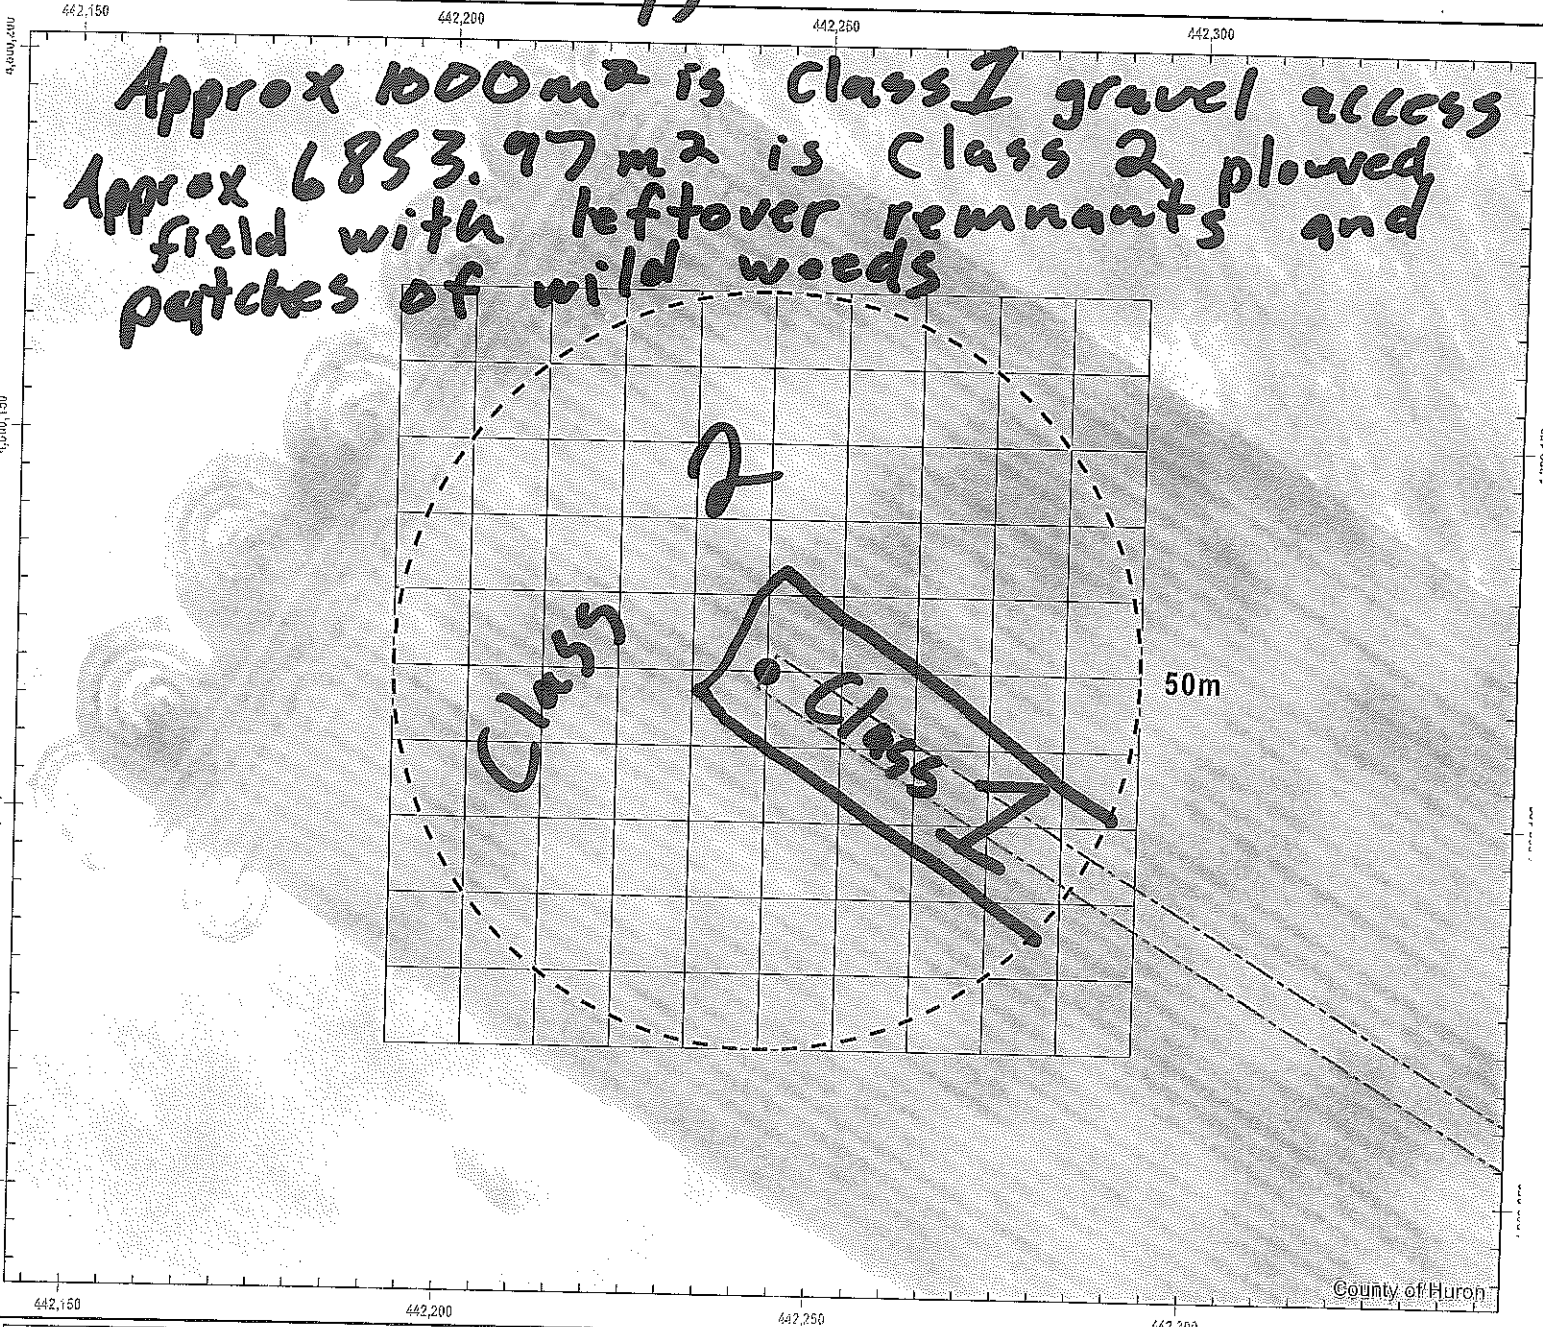 442,150
442,200
442,250
442,300
Approx 1000m² is Class 1 gravel access
Approx 6853.97m² is Class 2, plowed
field with leftover remnants and
patches of wild weeds
2
Class
Class 1
50m
County of Huron
442,150
442,200
442,250